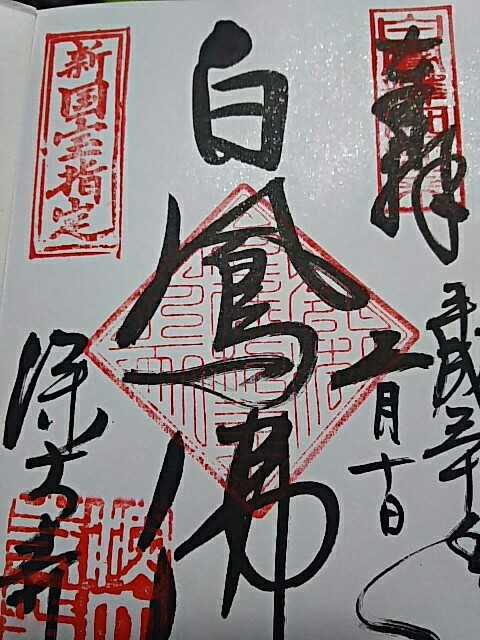 奉拝
平成三十年
二月十日
白鳳佛
新国宝指定
深大寺